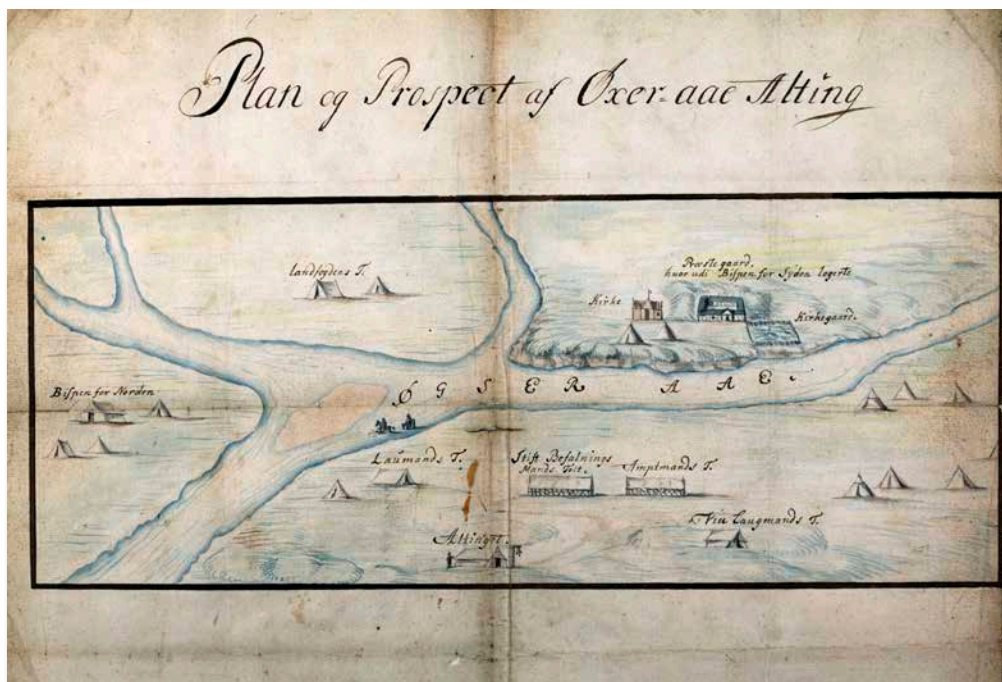 Plan og Prospect af Öxer-aae Alting
landfogdens T.
Præste gaard.
huor udi Bispen for Syden logerte
Kirke
Kirkegaard.
ÖGSER AAE.
Bispen for Norden
Laumands T.
Stift Befalnings
Mands Telt.
Amptmands T.
Vice Laugmands T.
Altinget.